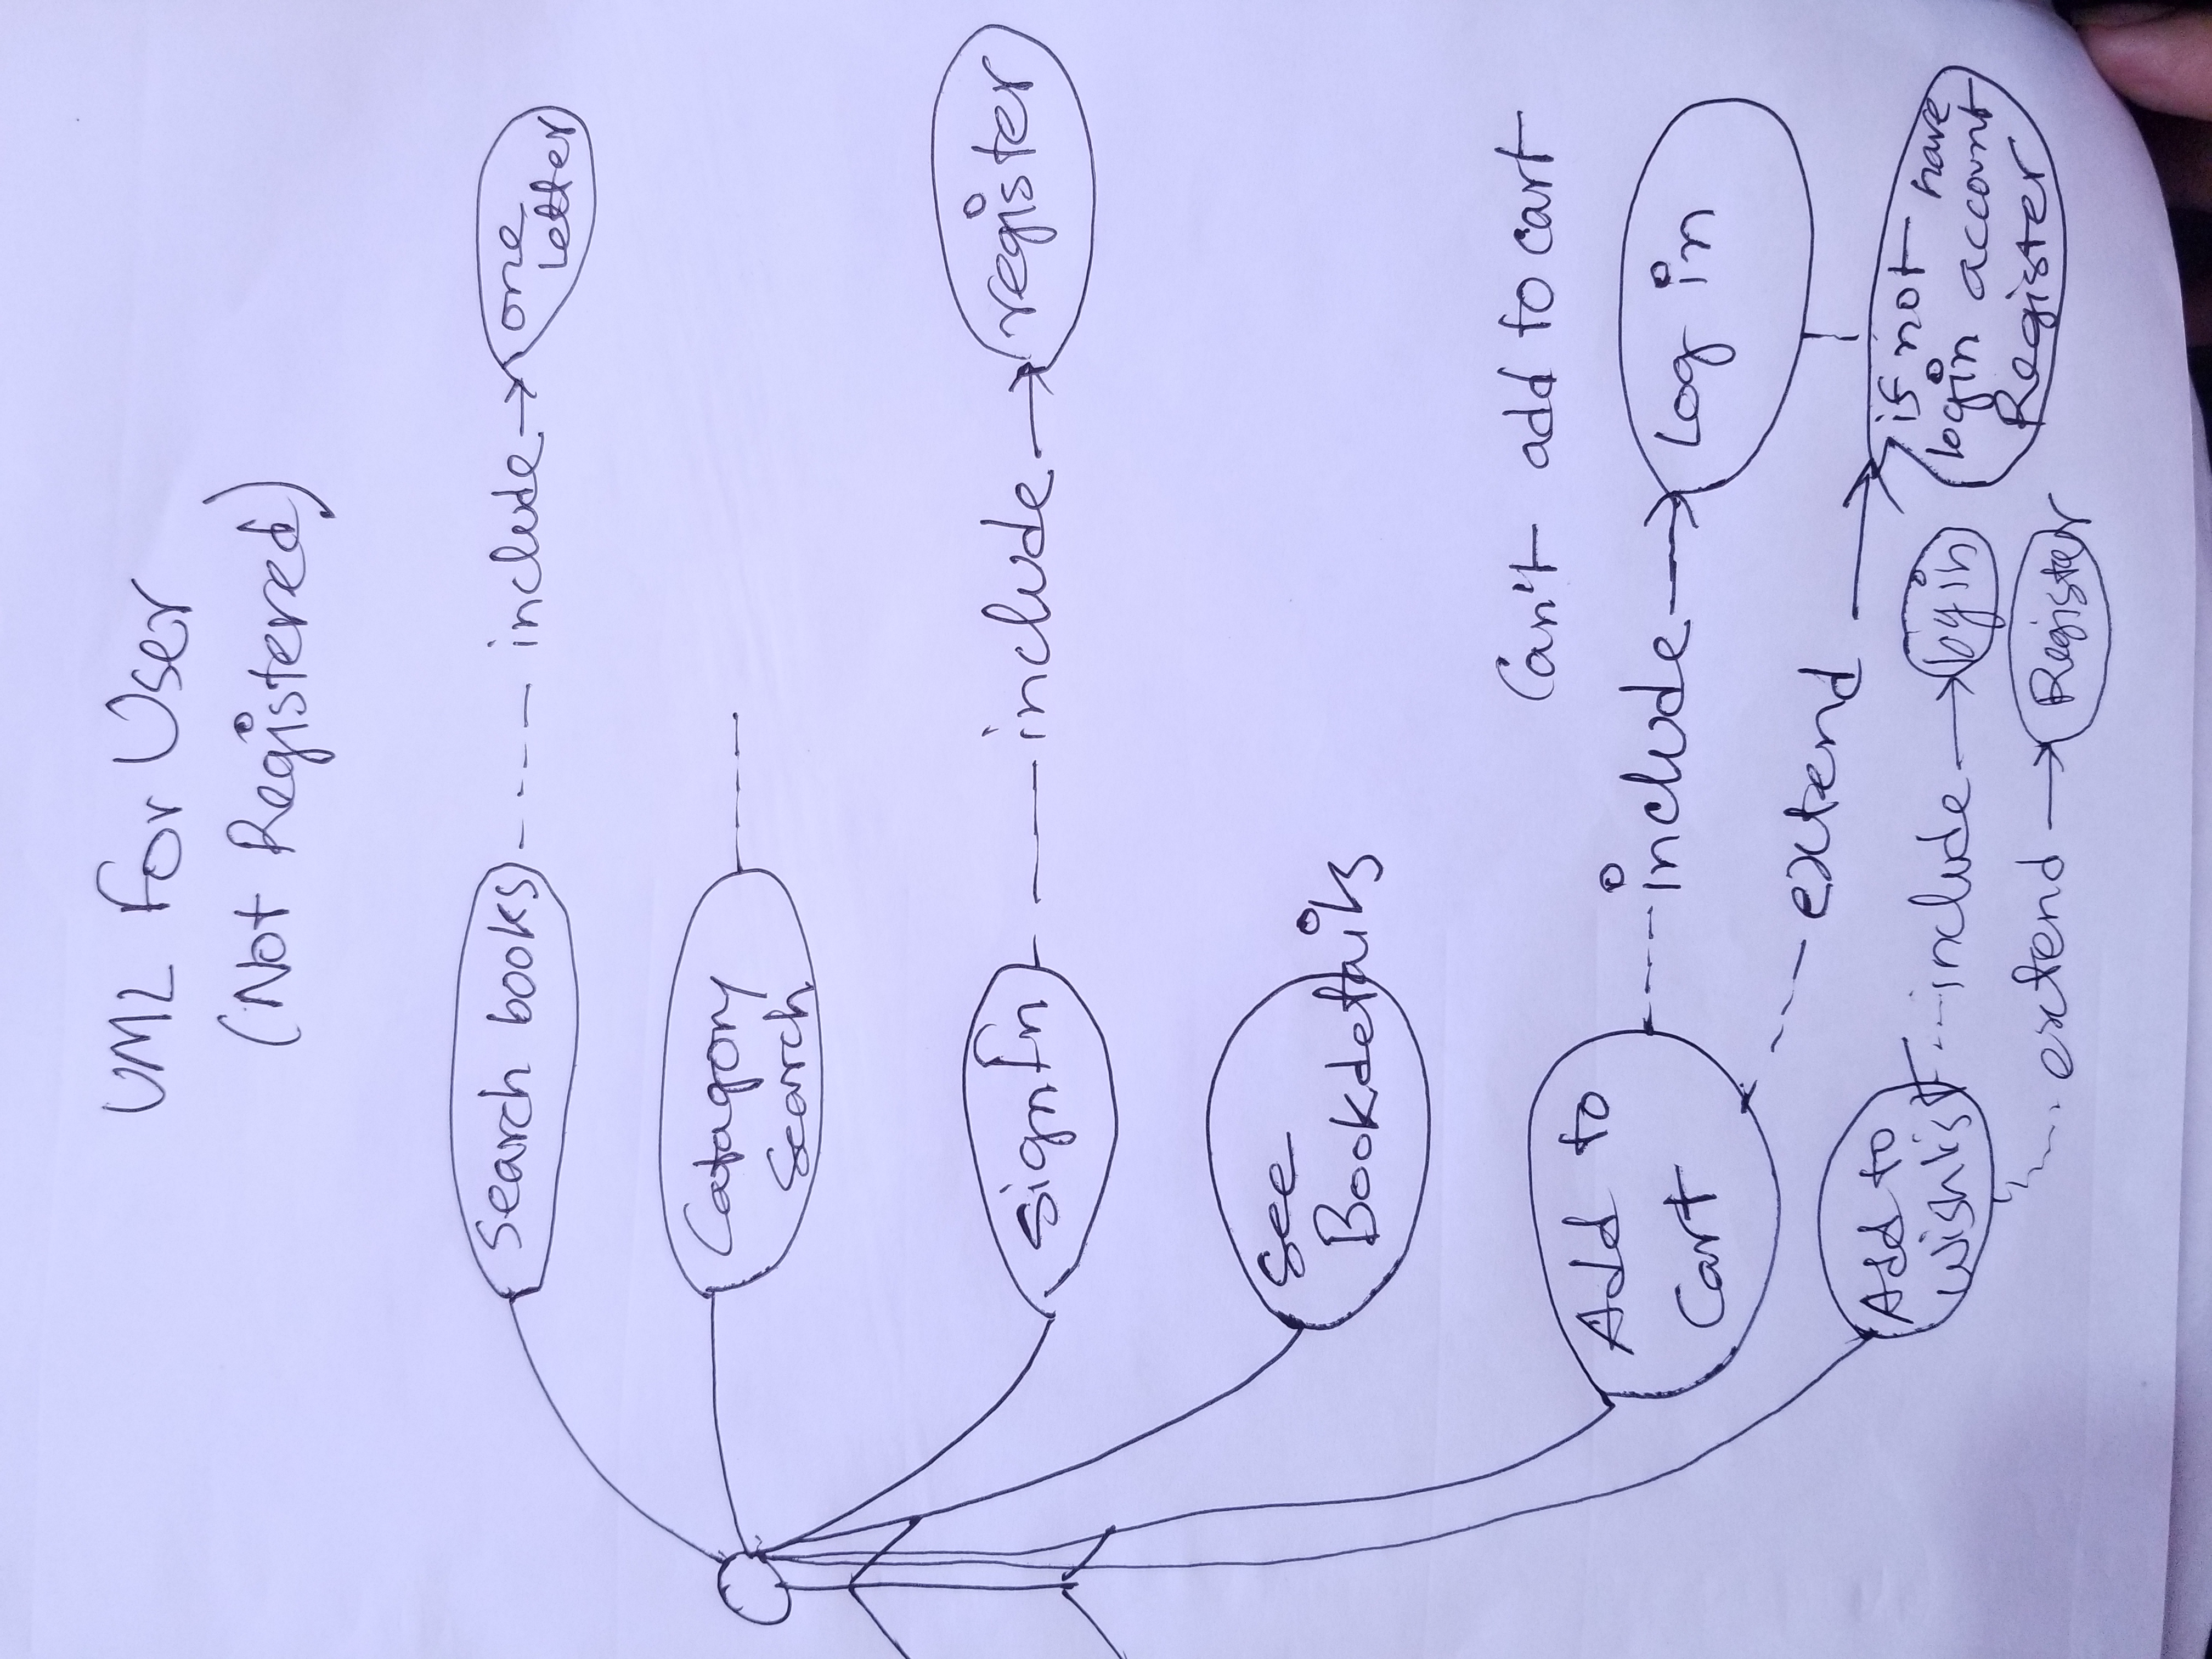 UML For User
(Not Registered)
Search books
include
one
Letter
Catagory
Search
signIn
include
register
see
Bookdetails
Can't add to cart
Add to
Cart
include
Log in
extend
if not have
login account
Register
Add to
wishlist
include
log in
extend
Register